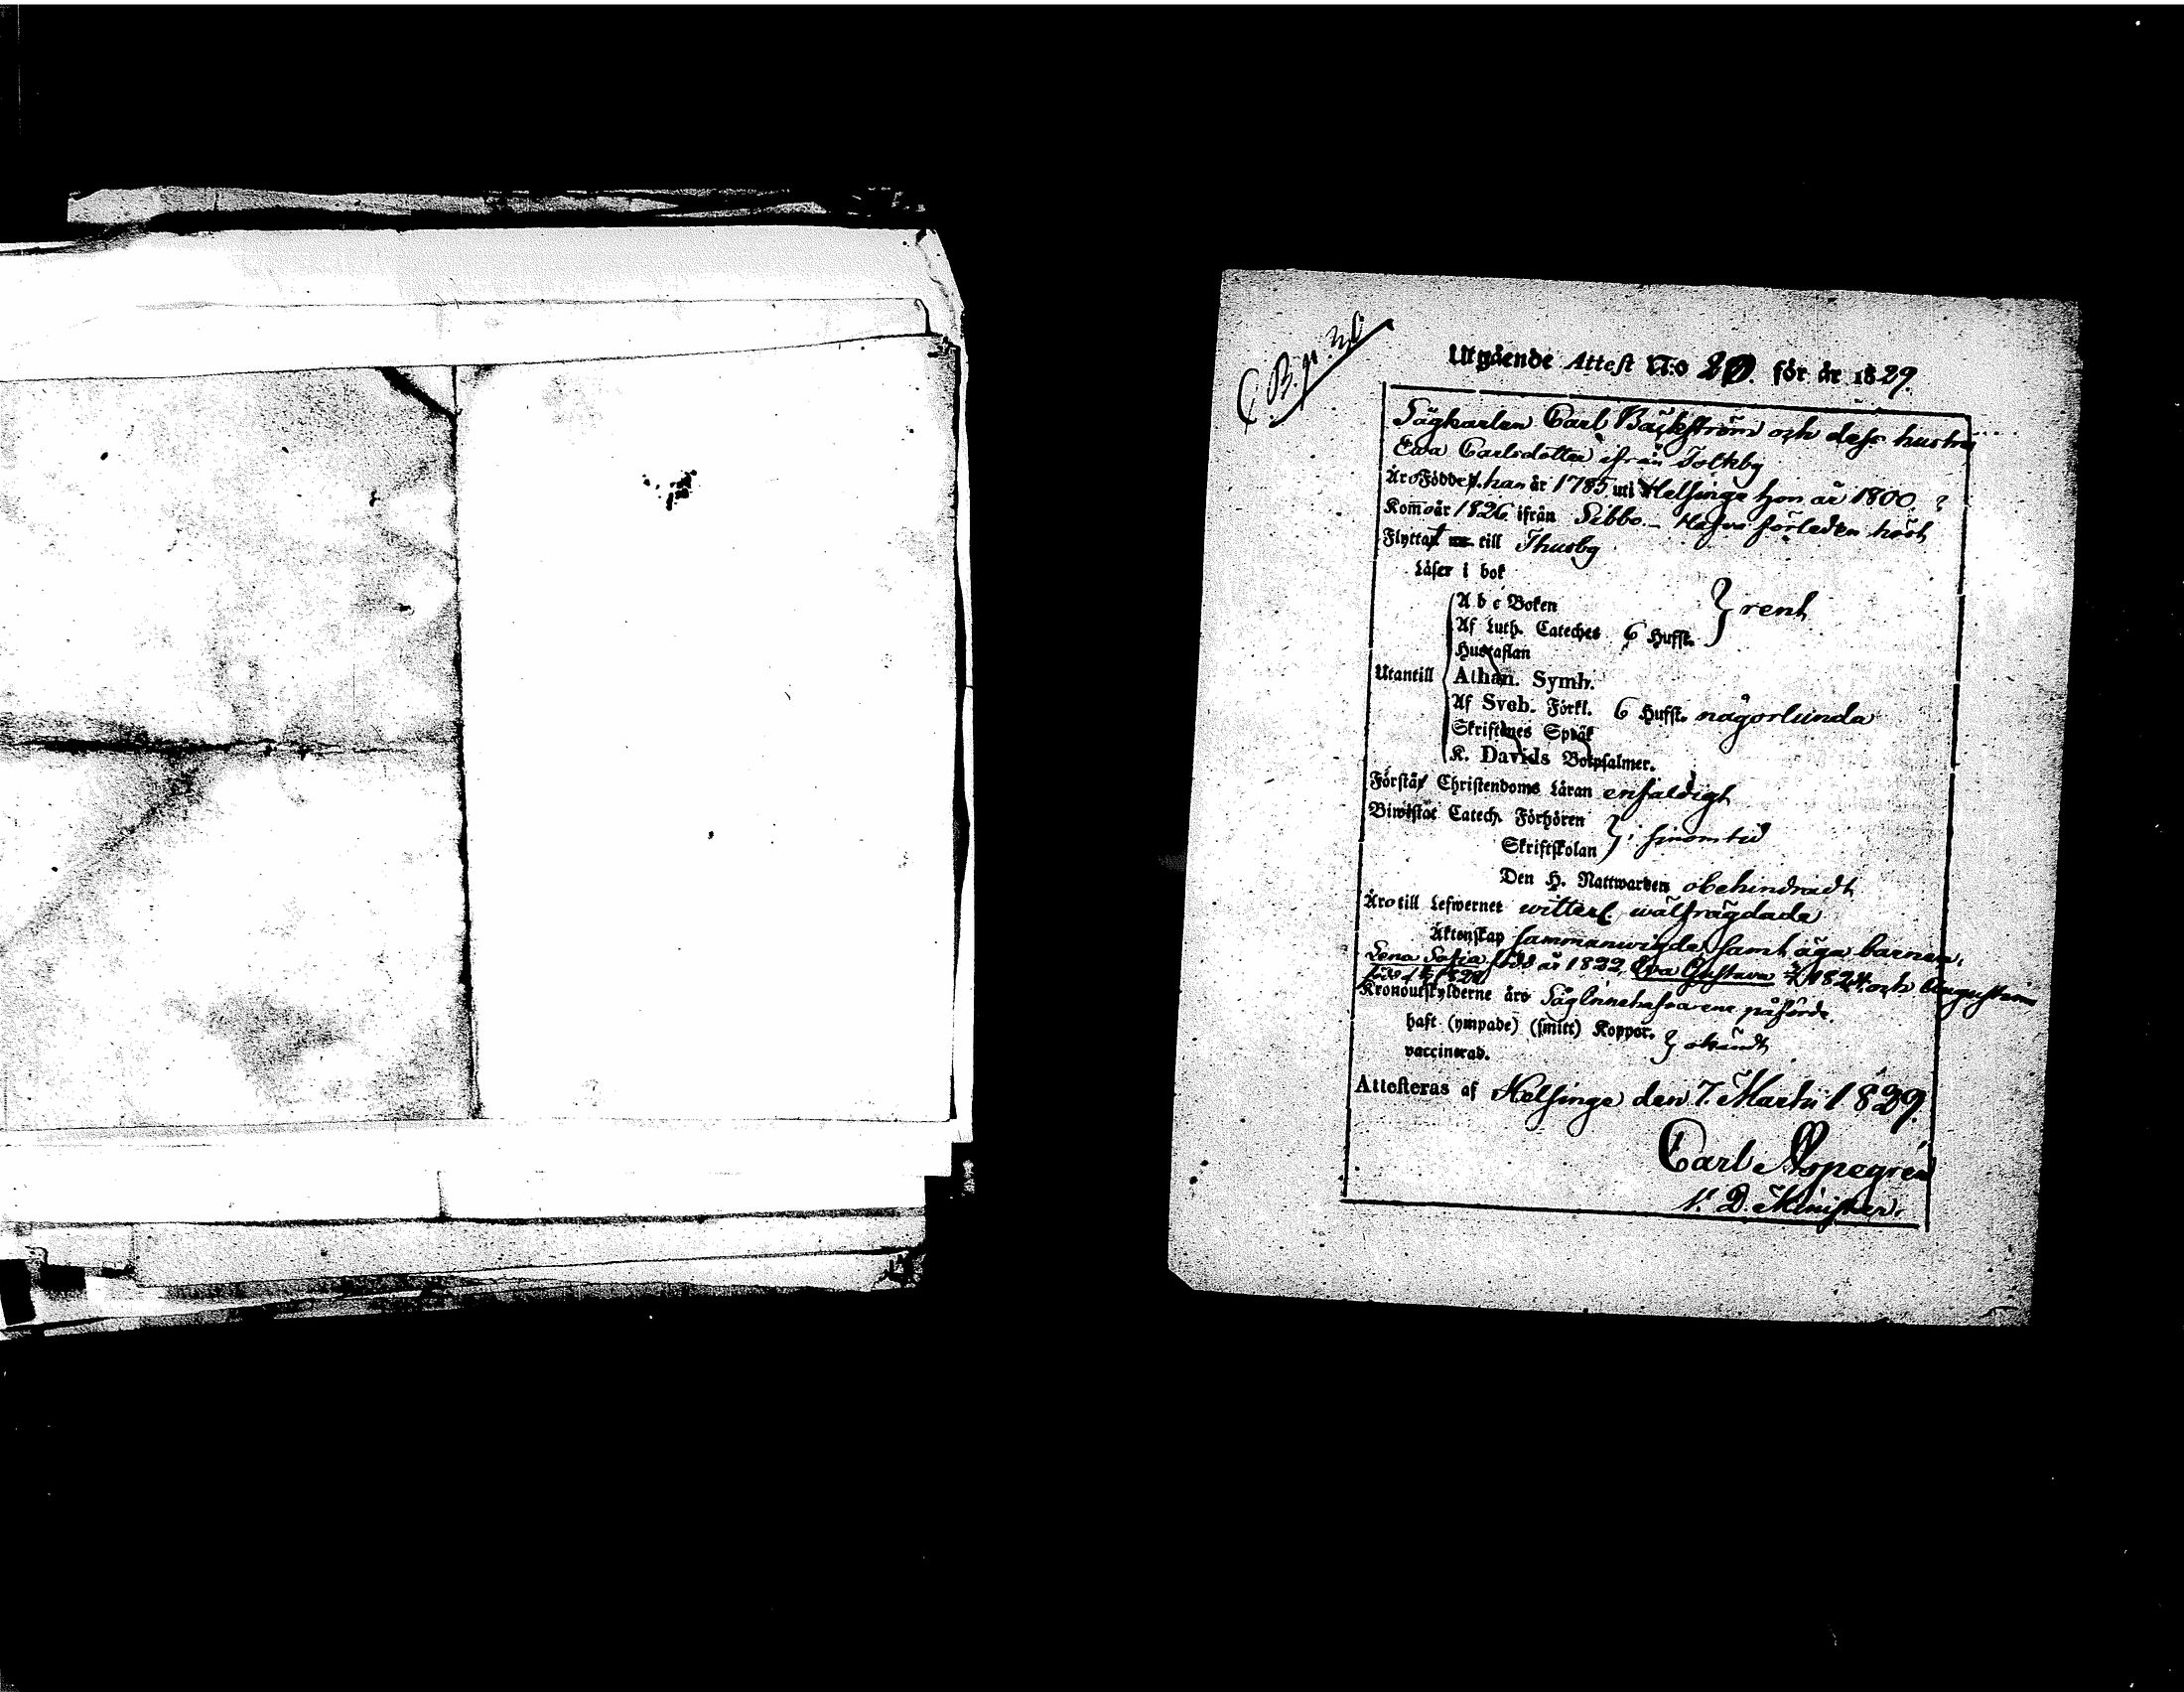 Utgående Attest N:o 20. för år 1829.
Sågkarlen Carl Bäckström och dess hustru
Ewa Carlsdotter ifrån Tolkby
Äro Födde, han år 1785 uti Helsinge hon år 1800
Kom̄o år 1826 ifrån Sibbo. – Hafva förleden höst
Flyttat till Thusby
Läser i bok
A b c Boken
Af Luth. Cateches 6 Hufst. } rent
Hustaflan
Utantill
Athan. Symb.
Af Sveb. Förkl. 6 Hufst. någorlunda
Skriftenes Språk
K. Davids Botpsalmer.
Förstå Christendoms Läran enfaldigt
Biwistat Catech. Förhören
Skriftskolan } i sinom tid
Den H. Nattwarden obehindradt
Äro till Lefwernet witterl. wälfrägdade
Äktenskap sammanwigde, samt äga barnen,
Lena Sofia född år 1822, Eva Gustava 1824. och Augustina
född
Kronoutskylderne äro Såginnehafvarene påförde.
haft (ympade) (smitt) Koppor.
vaccinerad. } okändt
Attesteras af Helsinge den 7. Martii 1829.
Carl Aspegrén
V. D. Minister.